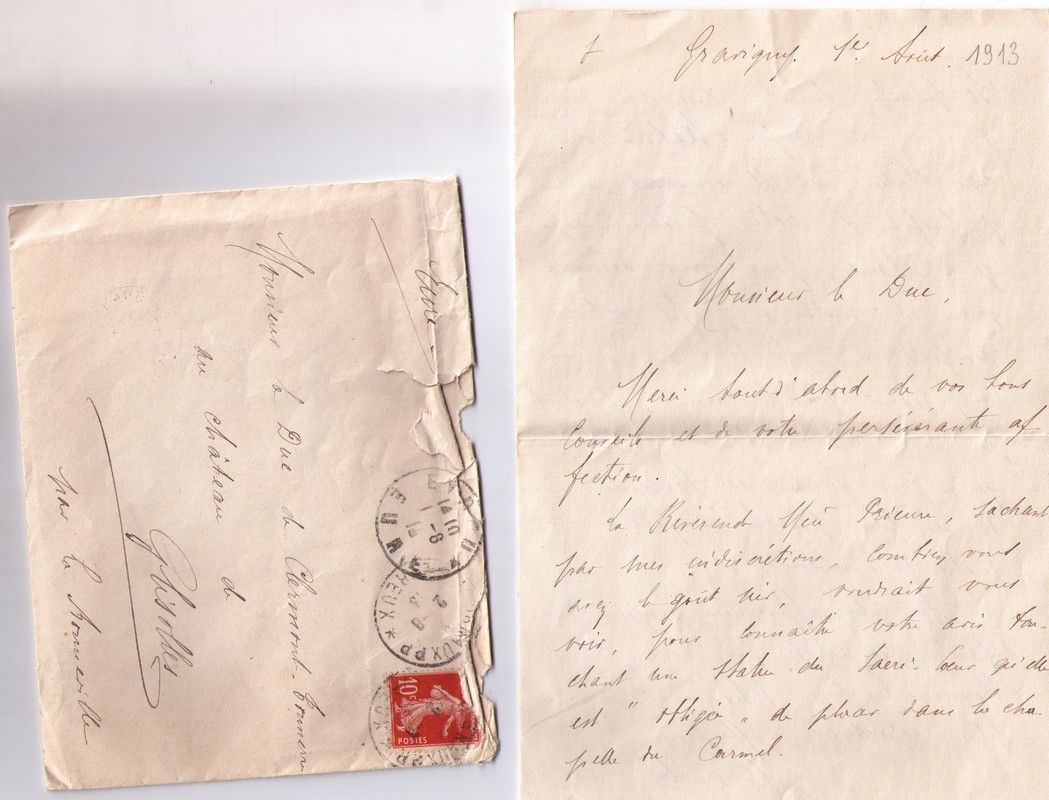 Monsieur le Duc de Clermont-Tonnerre
au château de
Glisolles
par la Bonneville
Eure
10c
POSTES
+ Gravigny. 1er Août. 1913
Monsieur le Duc,
Merci tout d'abord de vos bons
conseils et de votre persévérante af
fection.
La Révérende Mère Prieure, sachant
par mes indiscrétions, combien vous
avez le goût sûr, voudrait vous
voir, pour connaître votre avis tou-
chant une statue du Sacré-Cœur qu'elle
est "obligée" de placer dans la cha
pelle du Carmel.